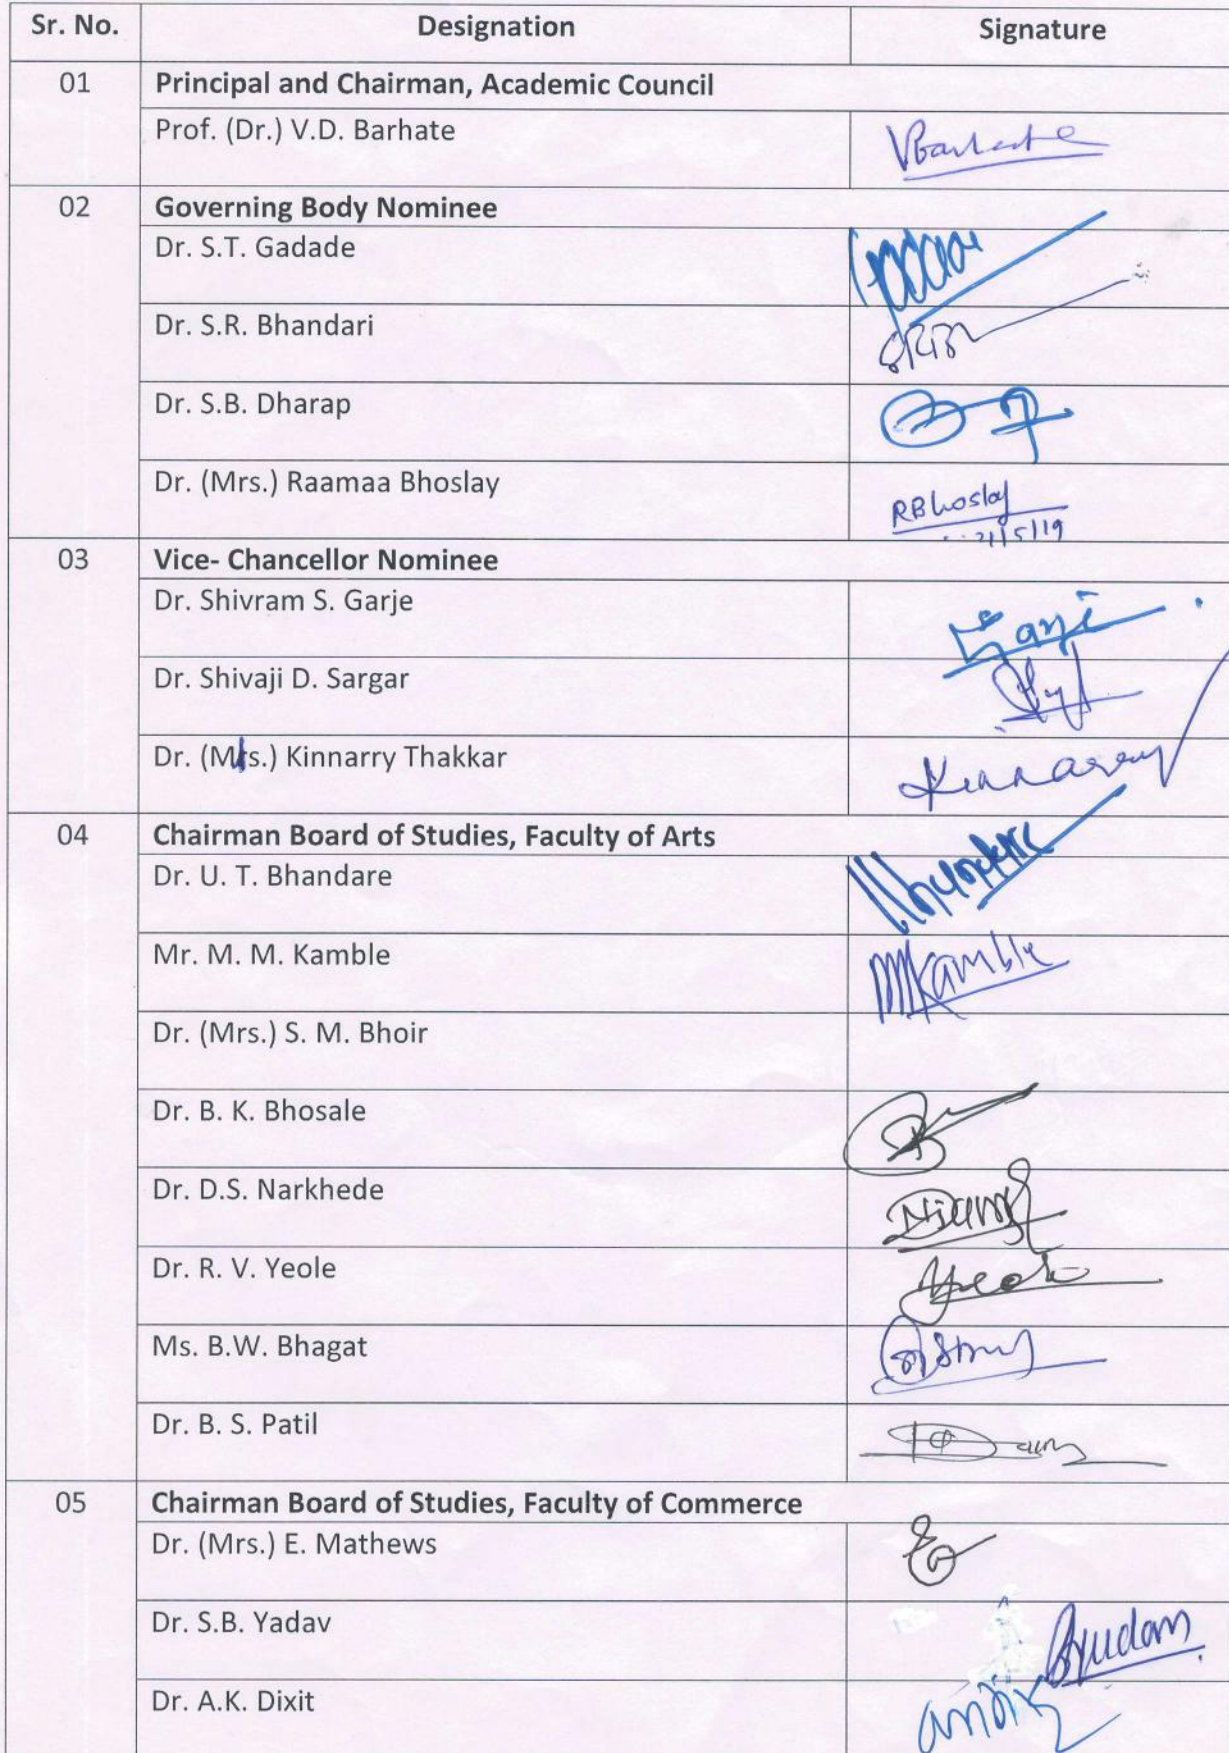 Sr. No. Designation Signature
01 Principal and Chairman, Academic Council
Prof. (Dr.) V.D. Barhate VBarhate
02 Governing Body Nominee
Dr. S.T. Gadade
Dr. S.R. Bhandari
Dr. S.B. Dharap
Dr. (Mrs.) Raamaa Bhoslay RBhoslay
21/5/19
03 Vice- Chancellor Nominee
Dr. Shivram S. Garje
Dr. Shivaji D. Sargar
Dr. (Ms.) Kinnarry Thakkar
04 Chairman Board of Studies, Faculty of Arts
Dr. U. T. Bhandare
Mr. M. M. Kamble MMKamble
Dr. (Mrs.) S. M. Bhoir
Dr. B. K. Bhosale
Dr. D.S. Narkhede
Dr. R. V. Yeole
Ms. B.W. Bhagat
Dr. B. S. Patil
05 Chairman Board of Studies, Faculty of Commerce
Dr. (Mrs.) E. Mathews
Dr. S.B. Yadav
Dr. A.K. Dixit